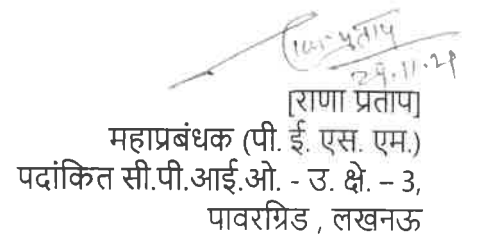 राणा प्रताप
29.11.21
[राणा प्रताप]
महाप्रबंधक (पी. ई. एस. एम.)
पदांकित सी.पी.आई.ओ. - उ. क्षे. – 3,
पावरग्रिड , लखनऊ